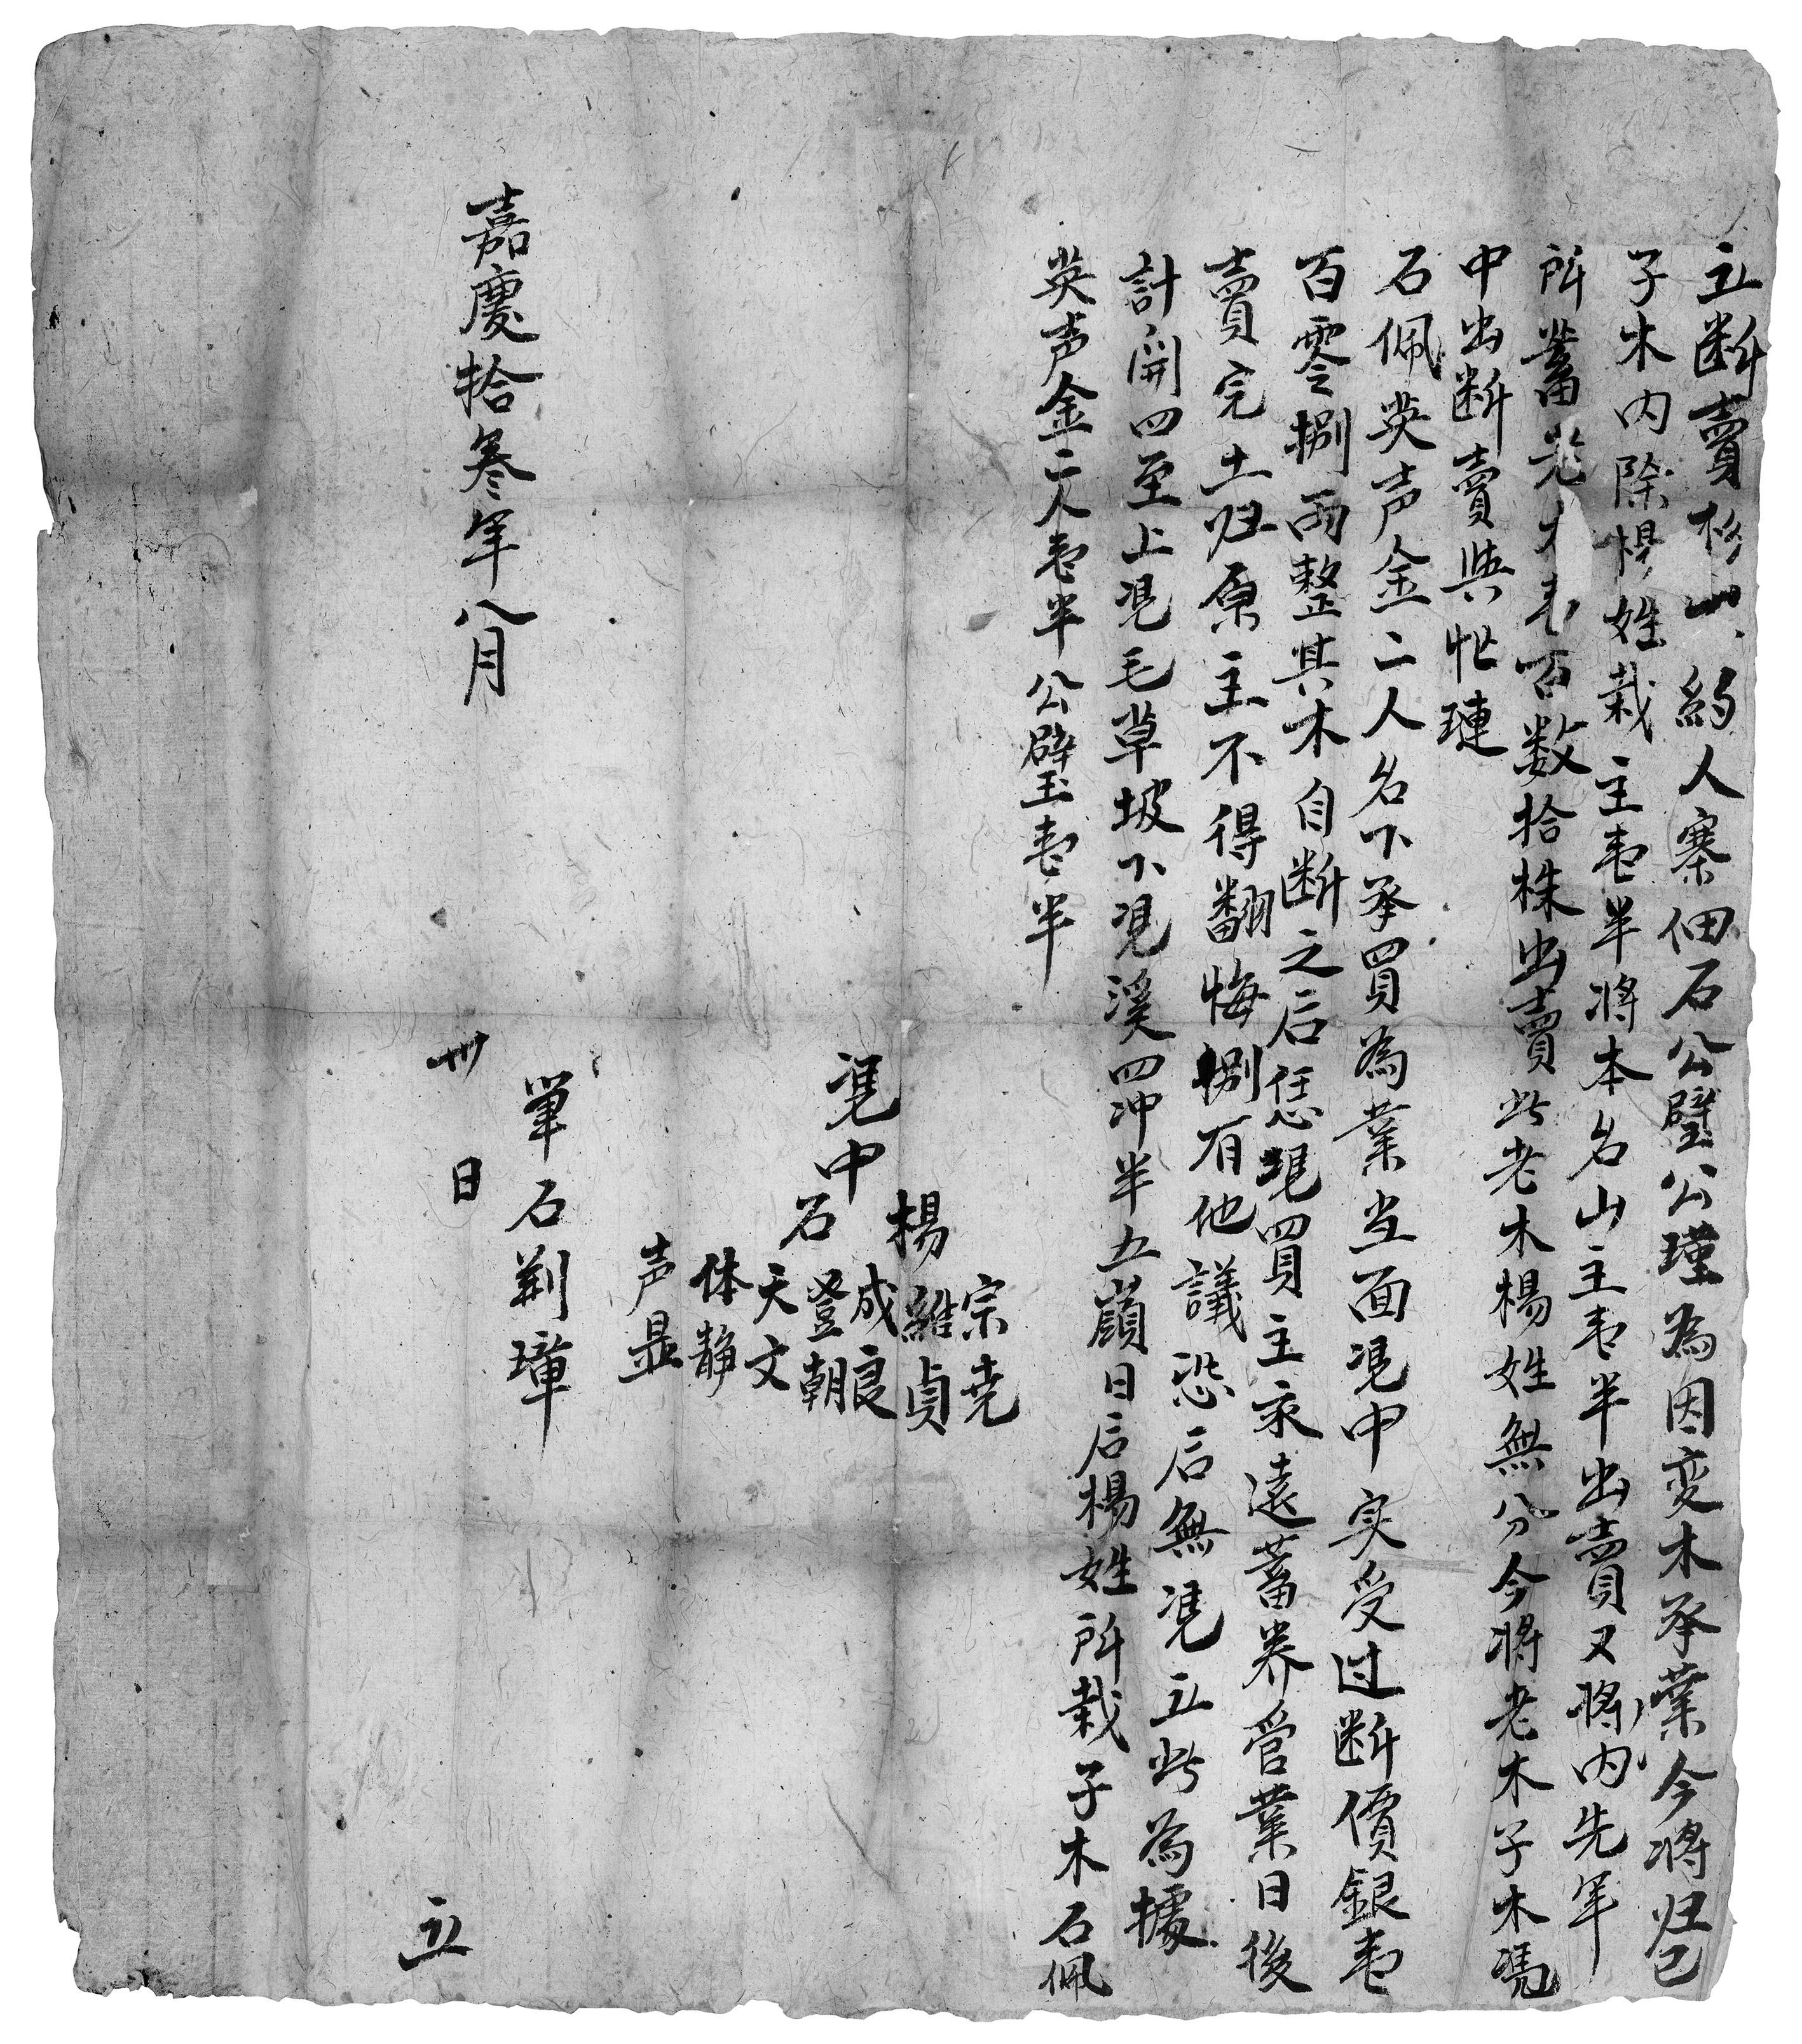 立断賣杉山約人寨佃石公璧公瑾為因变木承業今將归己
子木内除楊姓栽主壱半將本名山主壱半出賣又將内先年
所蓄老木壱百数拾株出賣此老木楊姓無分今將老木子木凴
中出断賣與忙璉
石佩英声金二人名下承買為業当面凴中实受过断價銀壱
百零捌両整其木自断之后恁凴買主永遠蓄养管業日後
賣完土归原主不得翻悔捌有他議恐后無凴立此為據
計開四至上凴毛草坡下凴溪四冲半五嶺日后楊姓所栽子木石佩
英声金二人壱半公璧壱半
宗尭
楊維貞
成良
凴中石登朝
天文
体静
声显
筆石荆璋
嘉慶拾叁年八月卅日立